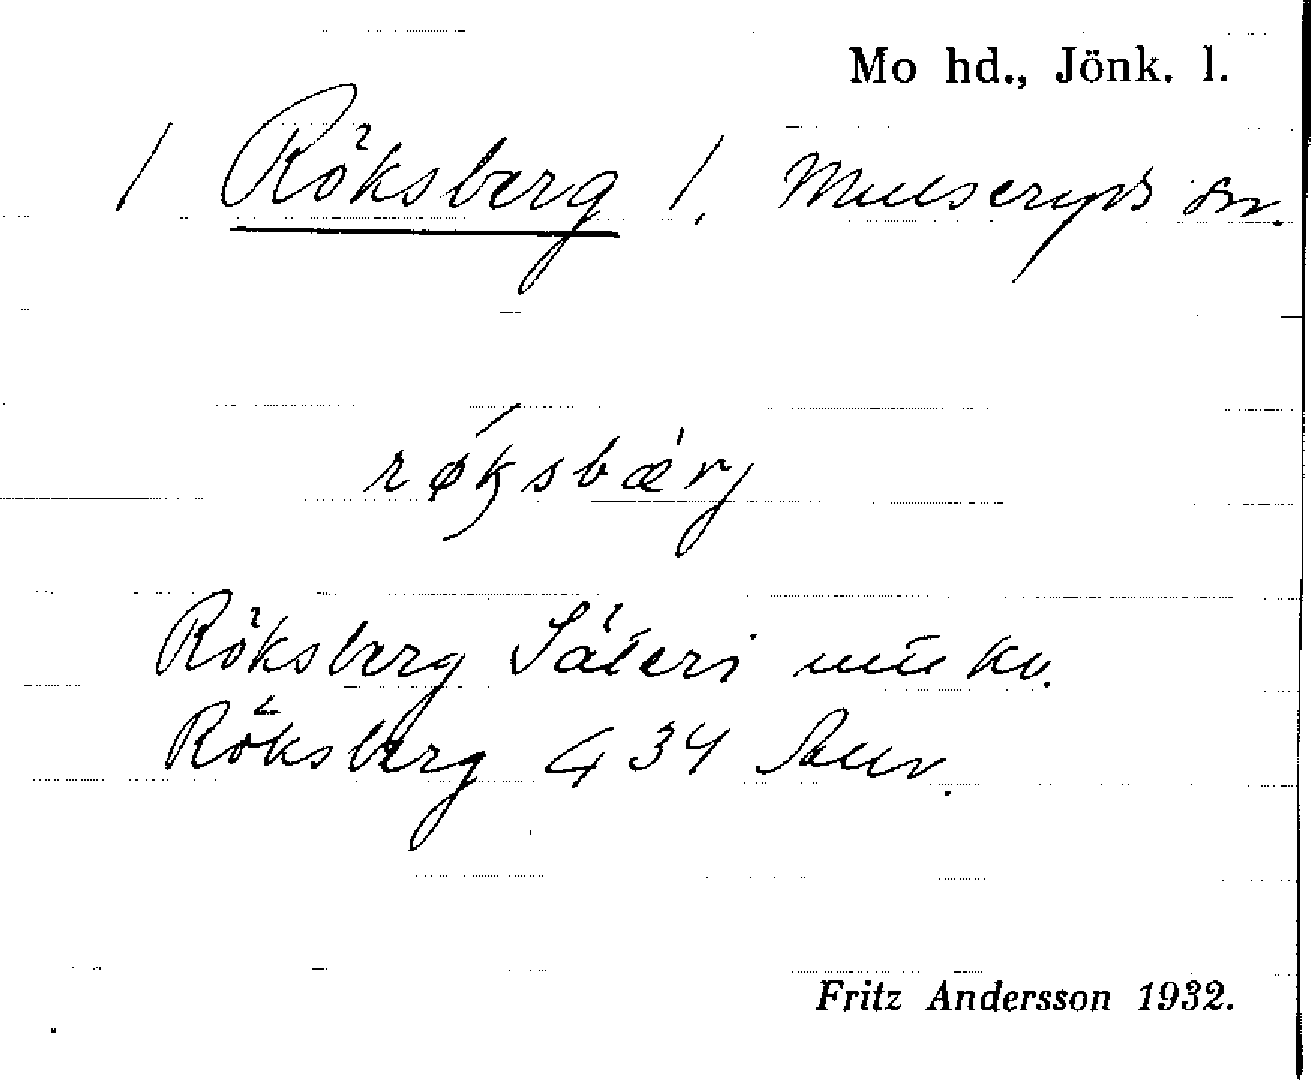 Mo hd., Jönk. l.
/ Röksberg /. Mulseryds sn.
røksbærj
Röksberg Säteri
Röksberg G 34
Fritz Andersson 1932.